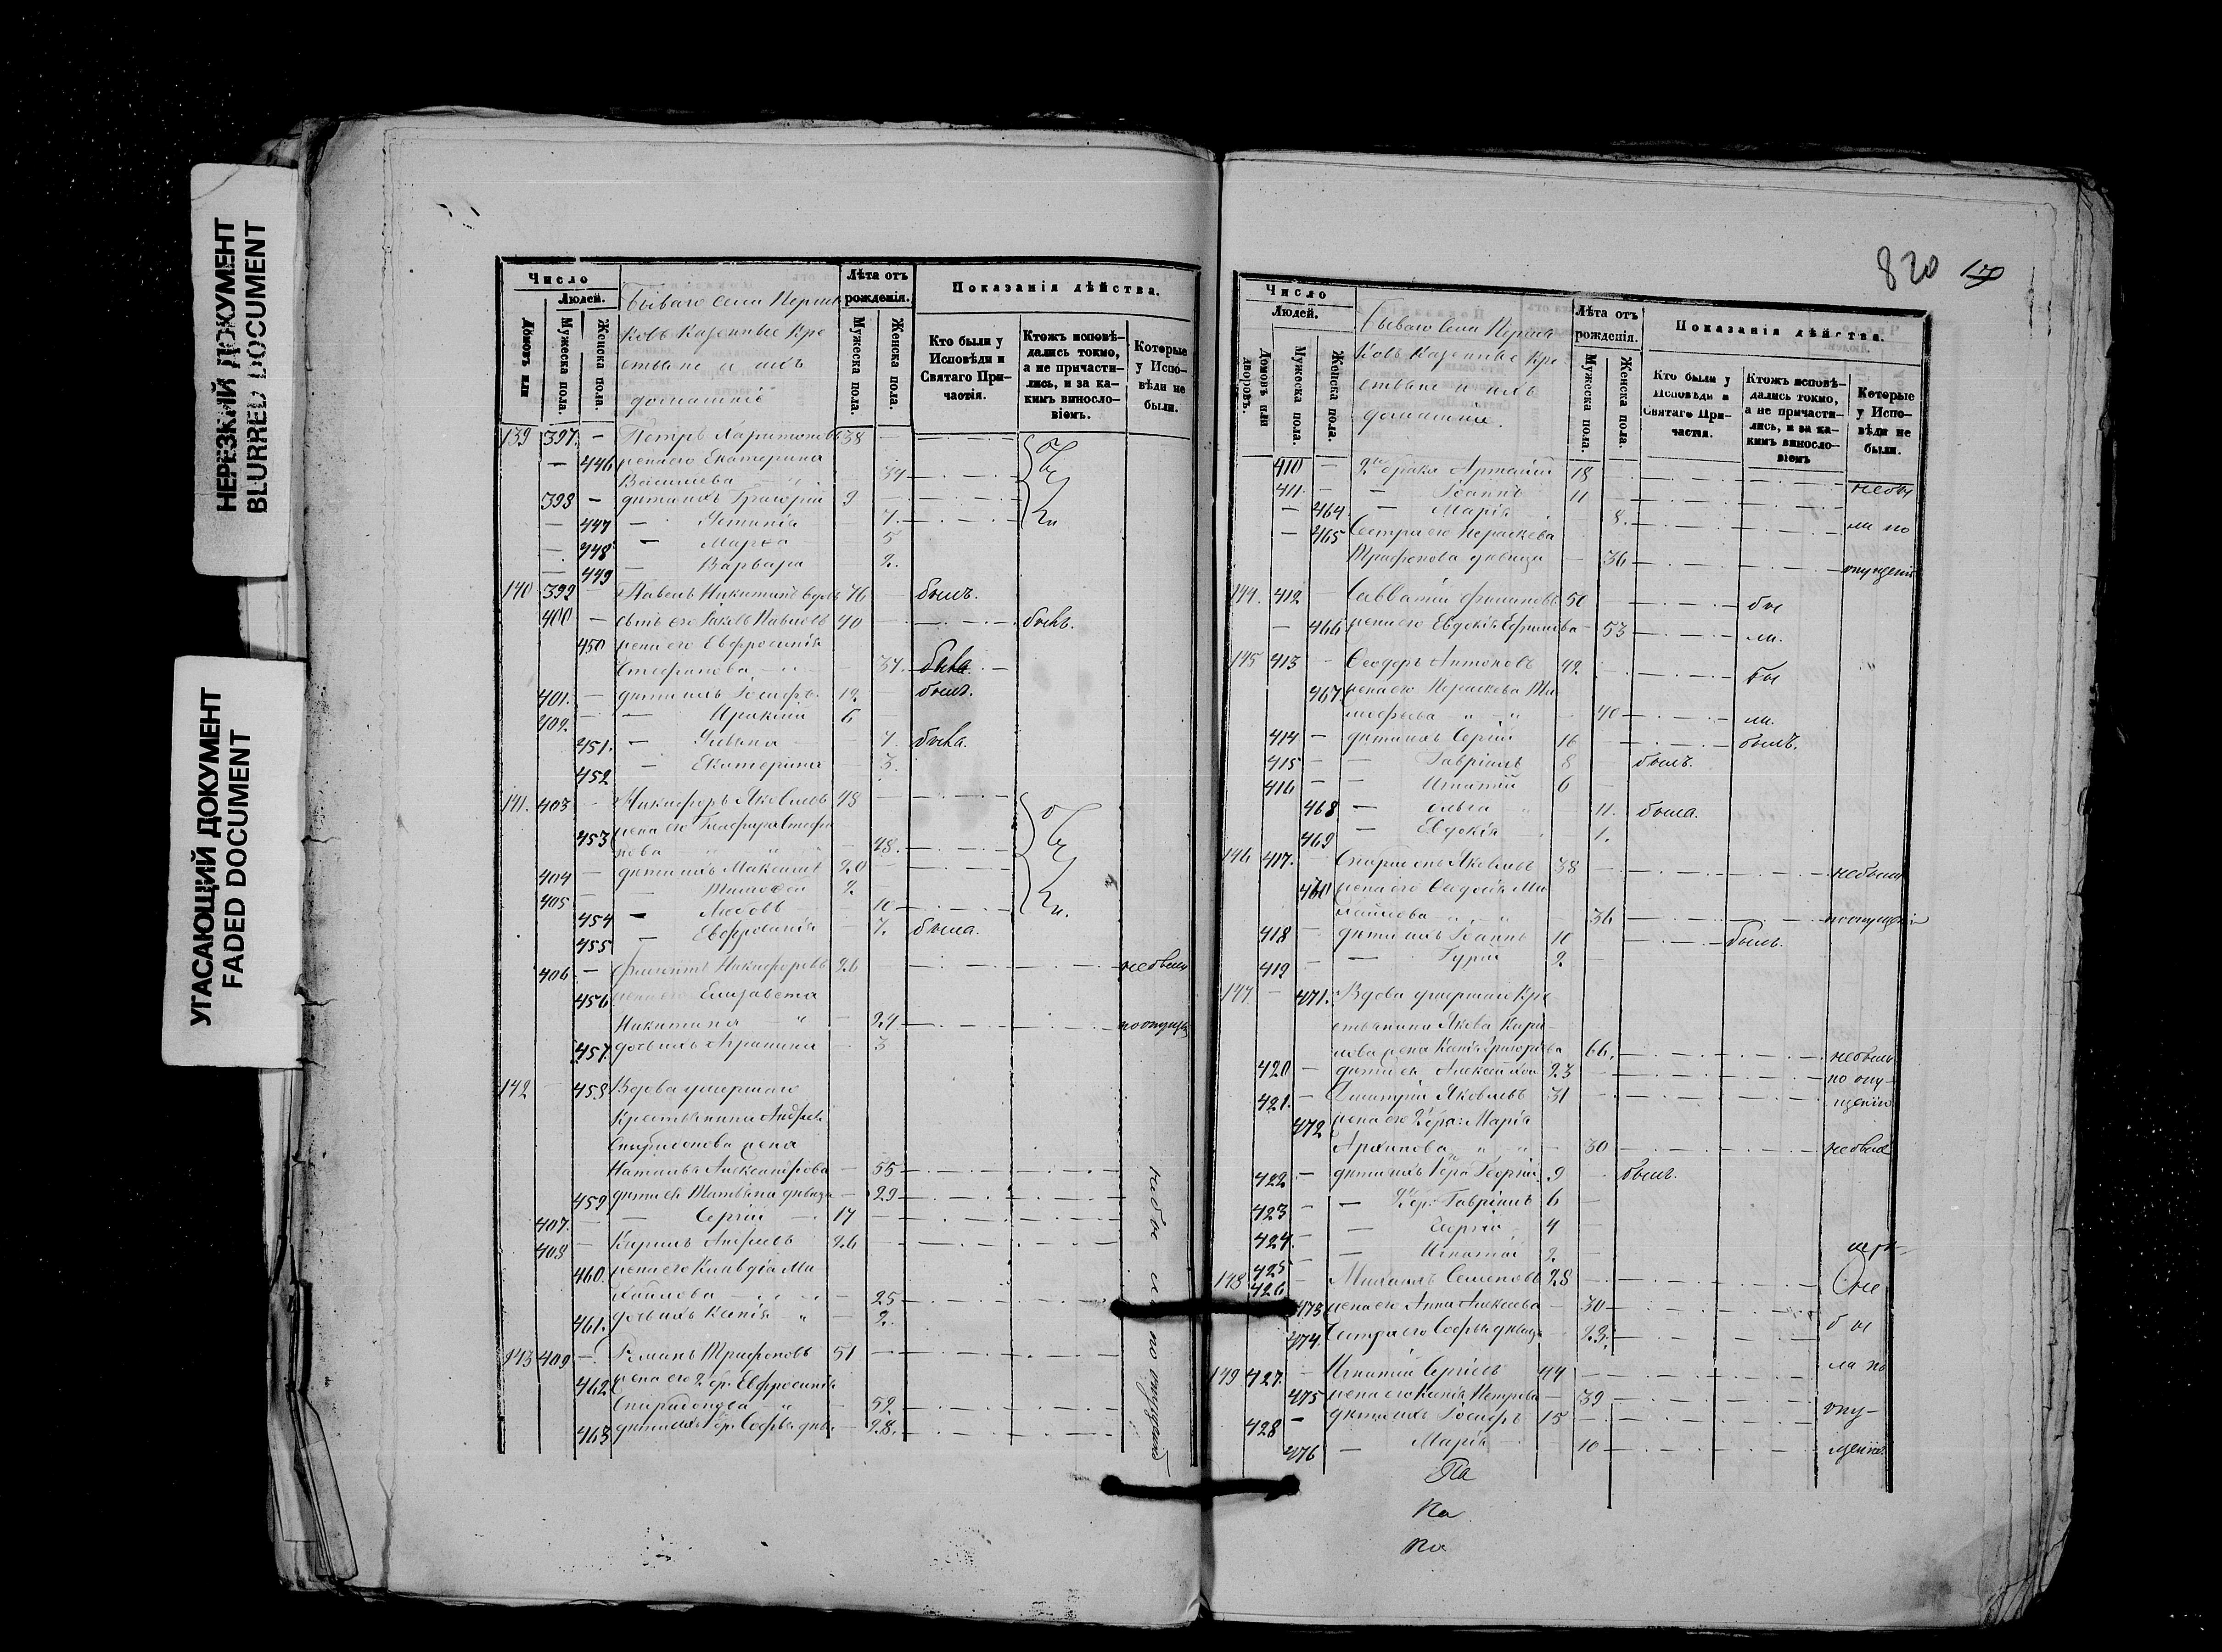 НЕРЕЗКИЙ ДОКУМЕНТ
BLURRED DOCUMENT
УГАСАЮЩИЙ ДОКУМЕНТ
FADED DOCUMENT
Число
Людей.
Домовъ или
Мужеска пола.
Женска пола.
Бываго Села
Казенные Кре
стьяне и ихъ
домашніе
Лѣта отъ
рожденія.
Мужеска пола.
Женска пола.
Показанія дѣйства.
Кто были у
Исповѣди и
Святаго При-
частія.
Ктожъ исповѣ-
дались токмо,
а не причасти-
лись, и за ка-
кимъ винosло-
віемъ.
Которые
у Испо-
вѣди не
были.
139 397 — Петръ Харитоновъ 38
— 446 жена его Екатерина
Васильева 34
398 — дѣти ихъ Григорій 9
— 447 — Устинія 7.
— 448 — Марѳа 5
— 449 — Варвара 2.
140 399 — Павелъ Никитинъ вдовъ 76 — былъ.
400 — сынъ его Іаковъ Павловъ 40 былъ.
450 жена его Евфросинія
Стефанова 37. была
401. — дѣти ихъ Іосифъ 12 — былъ.
402. — — Ираклій 6
451. — Уліяна 7. была.
452 — Екатерина 3.
141. 403 — Никифоръ Яковлевъ 48
453 жена его Стефа
нова 48.
404 — дѣти ихъ Максимъ 20
405 — Тимофей 2.
454 — Любовь 10
455 — Евфросинія 7. была.
406 — Никифоровъ 26 небыли
456 жена его Елизавета
Никитина 24 поопущ
457 дочь ихъ Агрипина 3
142 458 Вдова умершаго
Крестьянина Андрея
Спиридонова жена
Наталья Александрова 55
459 дѣти ея Татьяна дѣвица 29
407. — Сергій 17
408 — Кирилъ Андреевъ 26
460 жена его Клавдія Ми
хайлова 25
461. дочь ихъ Ксенія 2.
143 409 — Романъ Трифоновъ 51
462 жена его 2 бр. Евфросинія
Спиридонова 52
463 дѣти ихъ 1 бр. Софья дѣв. 28.
небы ли по опущенію
820
Число
Людей.
Домовъ или
дворовъ.
Мужеска пола.
Женска пола.
Бываго Села
Казенные Кре
стьяне и ихъ
домашніе.
Лѣта отъ
рожденія.
Мужеска пола.
Женска пола.
Показанія дѣйства.
Кто были у
Исповѣди и
Святаго При-
частія.
Ктожъ исповѣ-
дались токмо,
а не причасти-
лись, и за ка-
кимъ винosло-
віемъ
Которые
у Испо-
вѣди не
были.
410 — 2го брака Артемій 18 небы
411. — Іоаннъ 11
— 464 — Марія 8. ли по
— 465 Сестра его Параскева
Трифонова дѣвица 36 опущенію
144. 412 — Савватій Филиповъ 50 бы
— 466 жена его Евдокія Ефимова 53 ли.
145 413 — Ѳеодоръ Антоновъ 42 бы
467. жена его Параскева Ти
мофеева 40 ли.
414 — дѣти ихъ Сергій 16 былъ.
415 — — Гавріилъ 8 былъ.
416 — — Игнатій 6
468 — Ольга 11. была.
469 — Евдокія 1.
146 417. — Спиридонъ Яковлевъ 38 небыли
470 жена его Ѳеодосія Ми
хайлова 36 поопущенію
418 — дѣти ихъ Іоаннъ 10 былъ.
419 — — Гурій 2
147 — 471. Вдова умершаго Кре
стьянина Якова Кири
лова жена Ксенія Григорьева 66. небыли
420 — дѣти ея Алексій 23 по опу-
421. — Димитрій Яковлевъ 31 щенію
472 жена его 2 бра: Марія
Архипова 30 небыла
422 — дѣти ихъ 1 бра Георгій 9 былъ.
423 — — 2 бр. Гавріилъ 6
424. — Сергій 4
425 — Игнатій 2
148 426 — Михаилъ Семеновъ 28 не
473 жена его Анна Алексеева 30
474. Сестра его Софья дѣвица 23. бы
149 427. — Игнатій Сергіевъ 44 ла по
475 жена его Ксенія Петрова 39
428 — дѣти ихъ Іосифъ 15 опу-
476 — Марія 10 щенію.
Па
Ка